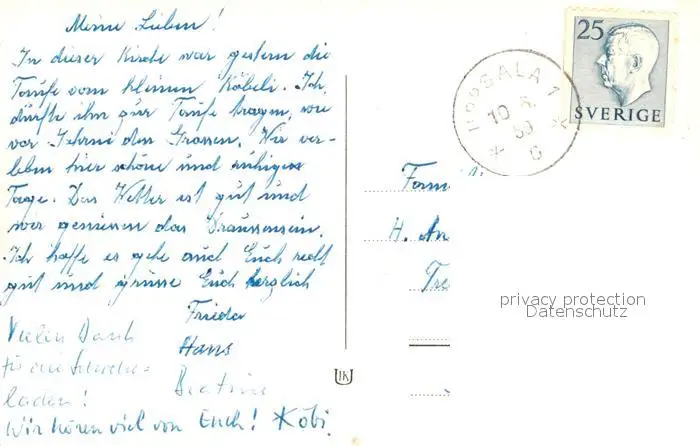 Meine Lieben!
In dieser Kirche war gestern die
Taufe vom kleinen Köbeli. Ich
durfte ihn zur Taufe tragen, wie
vor Jahren den Grossen. Wir ver-
leben hier schöne und ruhige
Tage. Das Wetter ist gut und
wir geniessen das Draussensein.
Ich hoffe es gehe auch Euch recht
gut und grüsse Euch herzlich
Frieda
Hans
Beatrice
Vielen Dank
für die
laden!
Wir hören viel von Euch! Köbi.
25
SVERIGE
UPPSALA 1
10
C
H. An
privacy protection
Datenschutz
JK